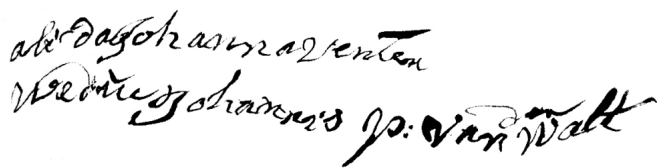 alidaJohannaventen
Weduesjohannis p: vand Walt